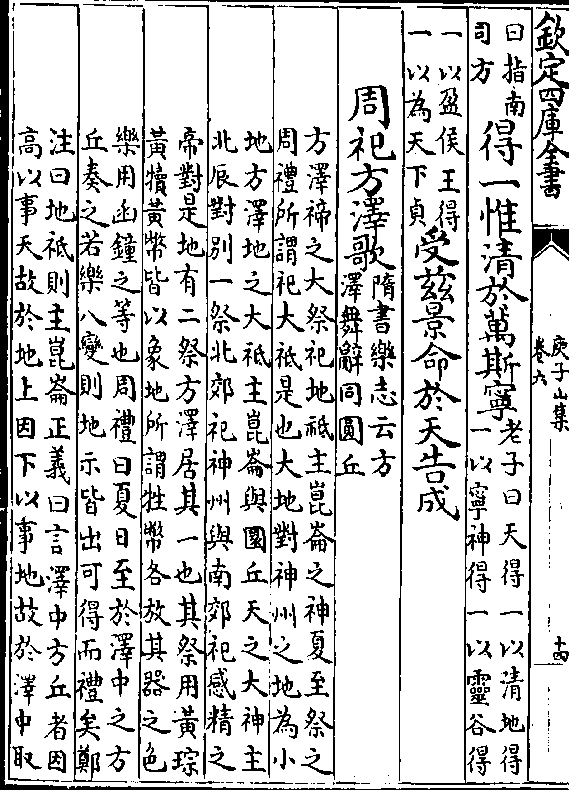 欽定四庫全書
庾子山集
卷六
十四
曰指南
司方
得一惟清於萬斯寧
老子曰天得一以清地得
一以寧神得一以靈谷得
一以盈侯王得
一以為天下貞
受茲景命於天告成
周祀方澤歌
隋書樂志云方
澤舞辭同圓丘
方澤禘之大祭祀地祇主崑崙之神夏至祭之
周禮所謂祀大祇是也大地對神州之地為小
地方澤地之大祇主崑崙與圜丘天之大神主
北辰對別一祭北郊祀神州與南郊祀感精之
帝對是地有二祭方澤居其一也其祭用黃琮
黃犢黃幣皆以象地所謂牲幣各放其器之色
樂用函鐘之等也周禮曰夏日至於澤中之方
丘奏之若樂八變則地示皆出可得而禮矣鄭
注曰地祇則主崑崙正義曰言澤中方丘者因
高以事天故於地上因下以事地故於澤中取